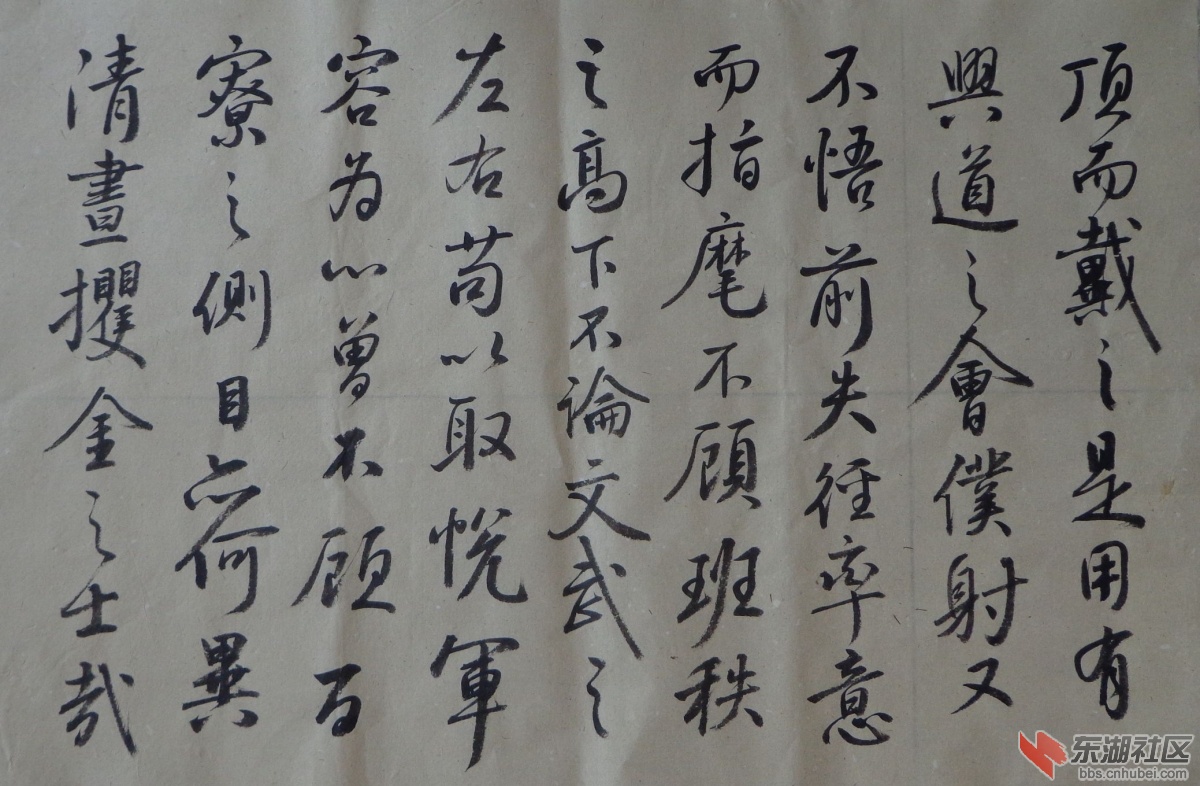 頂而戴之是用有
興道之會僕射又
不悟前失徑率意
而指麾不顧班秩
之高下不論文武之
左右苟以取悅軍
容為心曾不顧百
寮之側目亦何異
清晝攫金之士哉
东湖社区
bbs.cnhubei.com